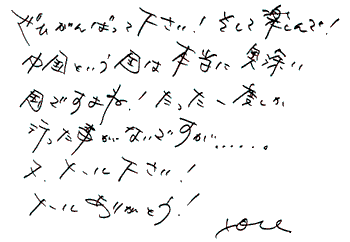 ぜひがんばって下さい!そして楽しんで!
中国という国は本当に奥深い
国ですよね!たった一度しか
行った事がないですが……。
又、メール下さい!
メールありがとう!